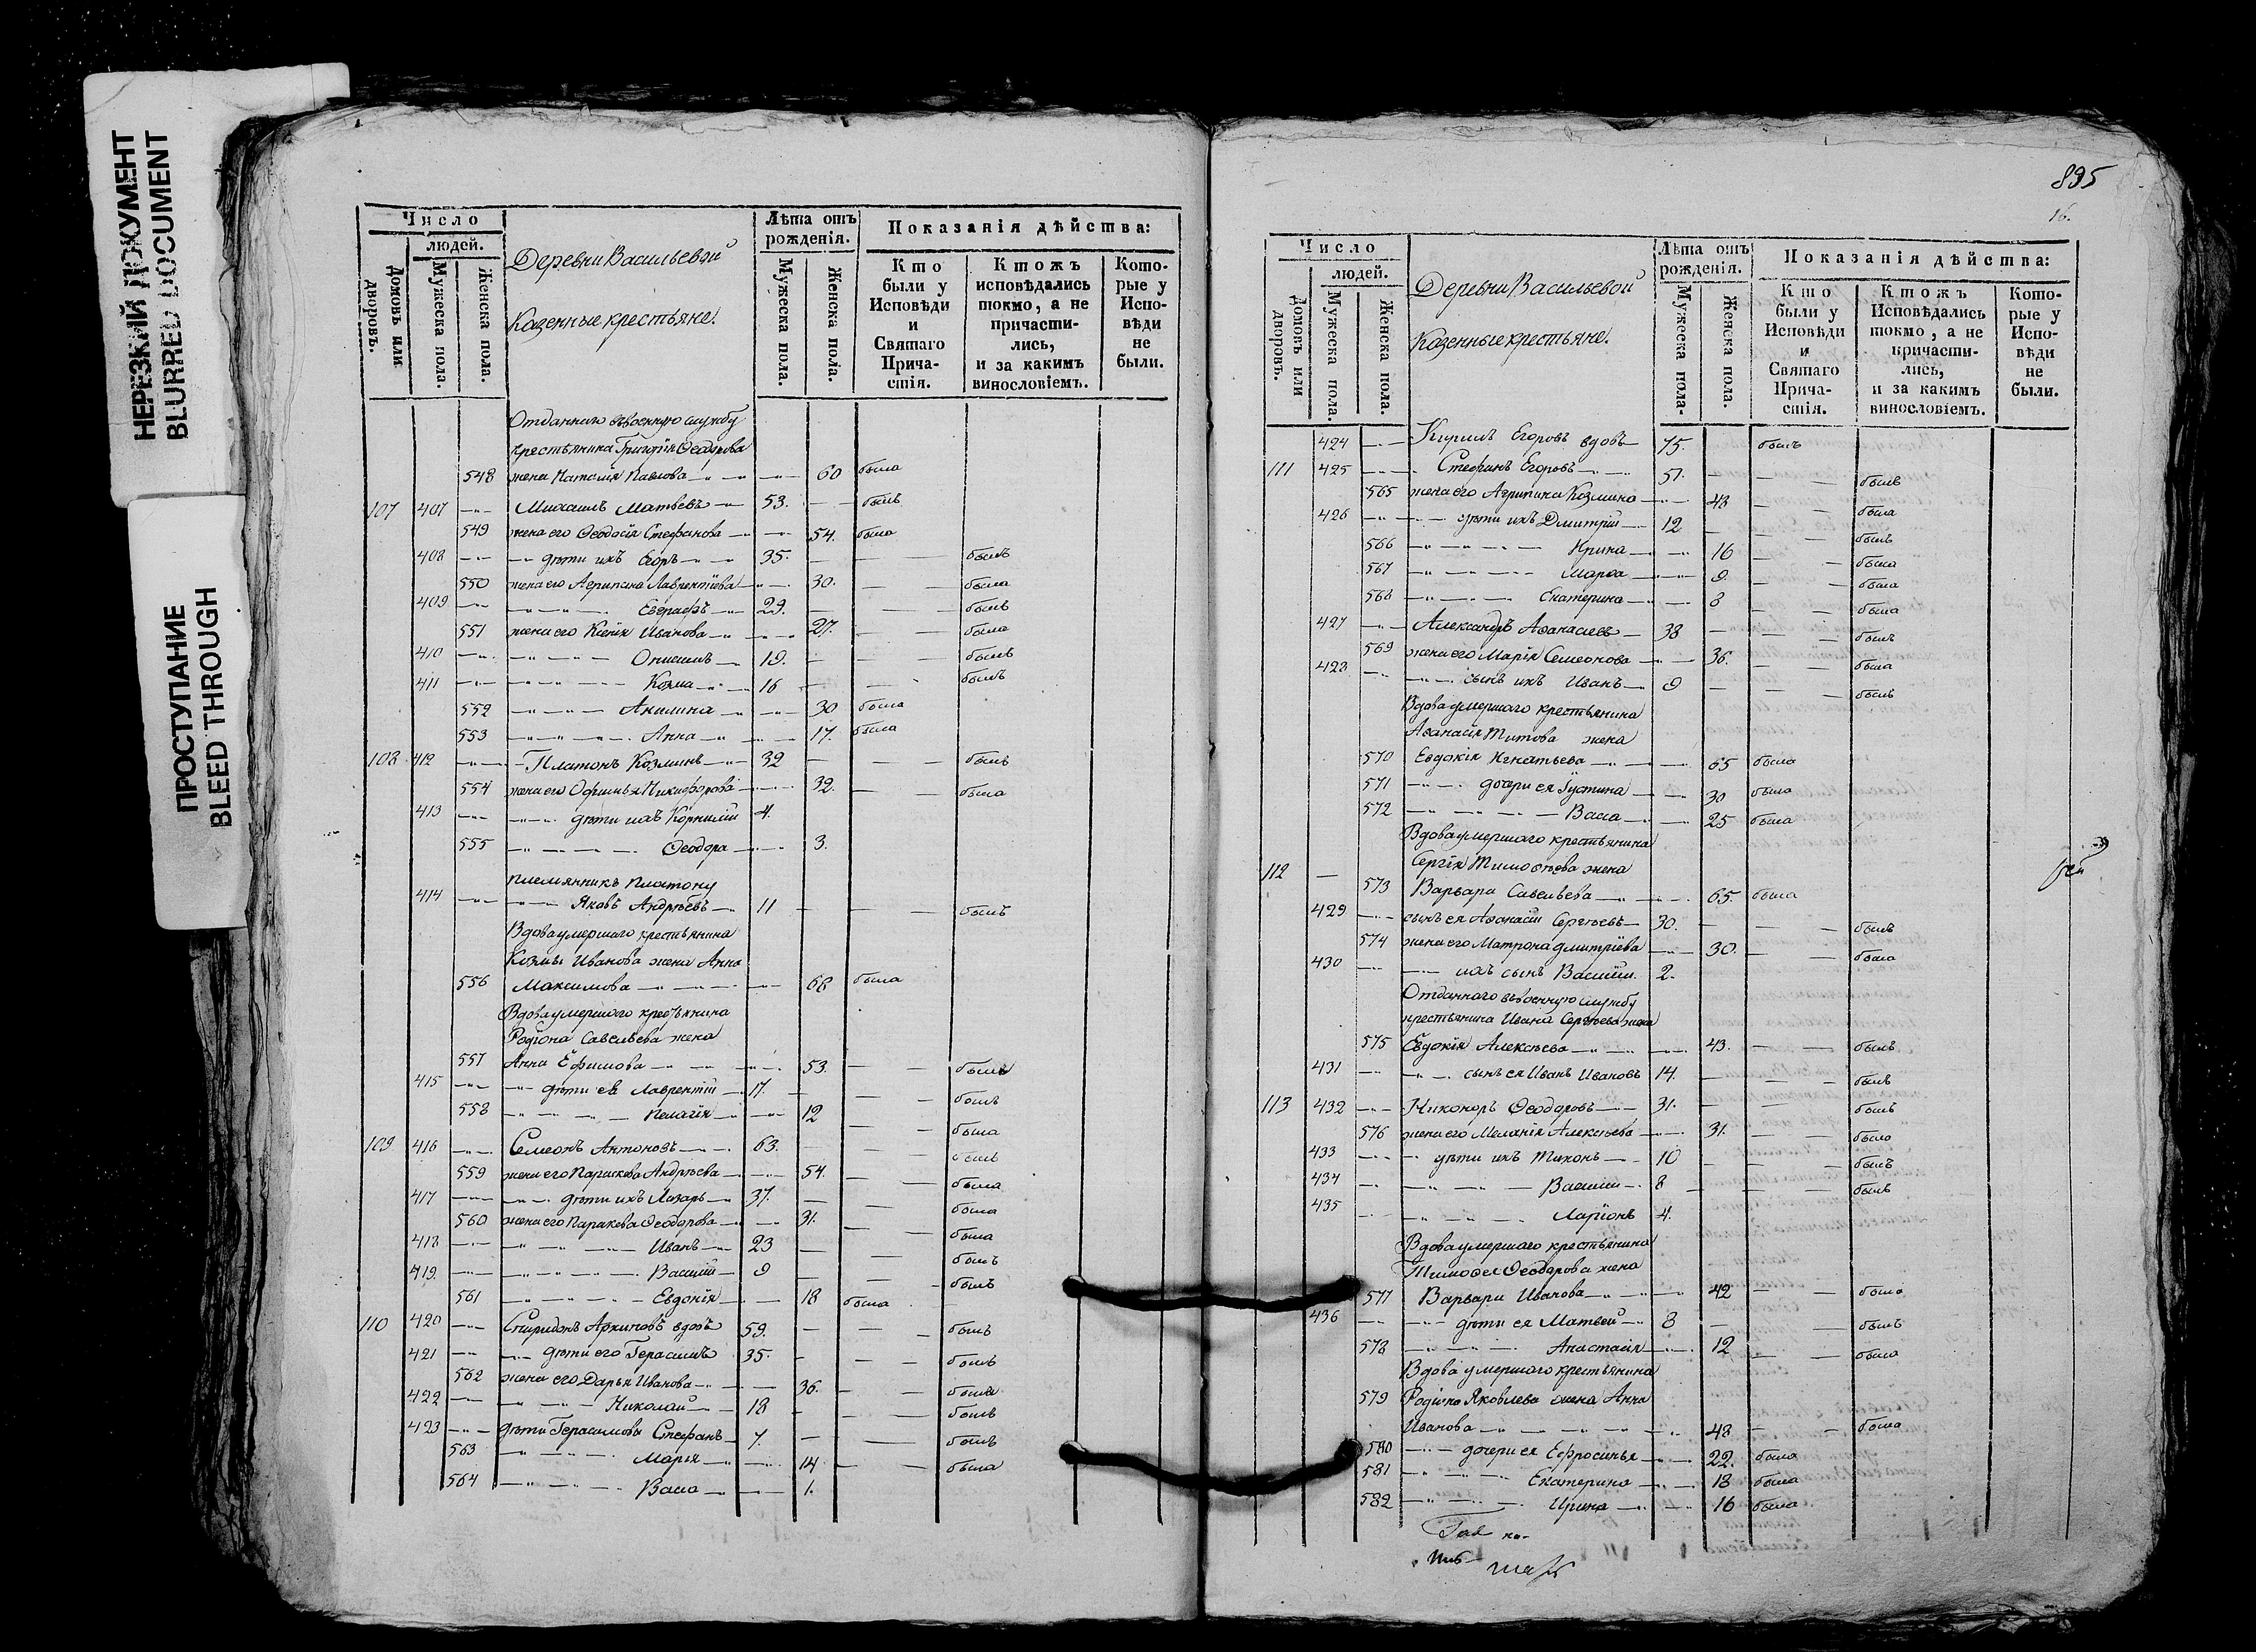 НЕРЕЗКИЙ ДОКУМЕНТ
BLURRED DOCUMENT
ПРОСТУПАНИЕ
BLEED THROUGH
Число
людей.
Домовъ или дворовъ.
Мужеска пола.
Женска пола.
Деревни Васильевой
Казенные крестьяне.
Лѣта отъ рожденія.
Мужеска пола.
Женска пола.
Показанія дѣйства:
Кто были у Исповѣди и Святаго Прича-стія.
Ктожъ исповѣдались токмо, а не причасти-лись, и за какимъ винословіемъ.
Кото-рые у Испо-вѣди не были.
Отданнаго въ военную службу
крестьянина Григорія Ѳеодорова
548 жена Наталія Павлова 60 была
107 407 Михаилъ Матвѣевъ 53. былъ
549 жена его Ѳеодосія Стефанова 54. была
408 дѣти ихъ Егоръ 35. былъ
550 жена его Агрипина Лаврентіева 30. была
409 Евграфъ 29. былъ
551 жена его Ксенія Иванова 27. была
410 Онисимъ 19. былъ
411 Козма 16 былъ
552 Акилина 30 была
553 Анна 17. была
108 412 Платонъ Козминъ 32 былъ
554 жена его Офимья Никифорова 32. была
413 дѣти ихъ Корнилій 4.
555 Ѳеодора 3.
племянникъ Платону
414 Яковъ Андрѣевъ 11 былъ
Вдова умершаго крестьянина
Козмы Иванова жена Анна
556 Максимова 68 была
Вдова умершаго крестьянина
Родіона Савельева жена
557 Анна Ефимова 53. была
415 дѣти ея Лаврентій 17. былъ
558 Пелагія 12 была
109 416 Семеонъ Антоновъ 63. былъ
559 жена его Параскева Андрѣева 54. была
417 дѣти ихъ Лазарь 37. была
560 жена его Параскева Ѳеодорова 31. была
418 Иванъ 23 былъ
419. Василій 9 былъ
561 Евдокія 18 была
110 420 Спиридонъ Архиповъ вдовъ 59. былъ
421 дѣти его Герасимъ 35. былъ
562 жена его Дарья Иванова 36. была
422 Николай 18 былъ
423 дѣти Герасимовы Стефанъ 7. былъ
563 Марія 14 была
564 Васса 1.
895
16.
Число
людей.
Домовъ или дворовъ.
Мужеска пола.
Женска пола.
Деревни Васильевой
Казенные крестьяне.
Лѣта отъ рожденія.
Мужеска пола.
Женска пола.
Показанія дѣйства:
Кто были у Исповѣди и Святаго Прича-стія.
Ктожъ Исповѣдались токмо, а не причасти-лись, и за какимъ винословіемъ.
Кото-рые у Испо-вѣди не были.
424 Кирилъ Егоровъ вдовъ 75. былъ
111 425 Стефанъ Егоровъ 51. былъ
565 жена его Агрипина Козмина 48 была
426 дѣти ихъ Димитрій 12 былъ
566 Ирина 16 была
567 Марѳа 9. была
568 Екатерина 8 была
427 Александръ Аѳанасьевъ 38 былъ
569 жена его Марія Семеонова 36. была
428 сынъ ихъ Иванъ 9 былъ
Вдова умершаго крестьянина
Аѳанасія Титова жена
570 Евдокія Игнатьева 65 была
571 дочери ея Густина 30 была
572 Васса 25 была
Вдова умершаго крестьянина
112 Сергія Тимоѳеева жена
573 Варвара Савельева 65. была
429 сынъ ея Аѳанасій Сергѣевъ 30. былъ
574 жена его Матрона Дмитріева 30. была
430 ихъ сынъ Василій 2.
Отданнаго въ военную службу
крестьянина Ивана Сергѣева жена
575 Евдокія Алексѣева 43. былъ
431 сынъ ея Иванъ Ивановъ 14. былъ
113 432 Никоноръ Ѳеодоровъ 31. былъ
576 жена его Меланія Алексѣева 31. была
433 дѣти ихъ Тихонъ 10 былъ
434 Василій 8 былъ
435 Ларіонъ 4.
Вдова умершаго крестьянина
Тимоѳея Ѳеодорова жена
577 Варвара Иванова 42 была
436 дѣти ея Матвей 8 былъ
578 Анастасія 12 была
Вдова умершаго крестьянина
579 Родіона Яковлева жена Анна
Иванова 48 была
580 дочери ея Ефросинья 22. была
581 Екатерина 18 была
582 Ирина 16 была